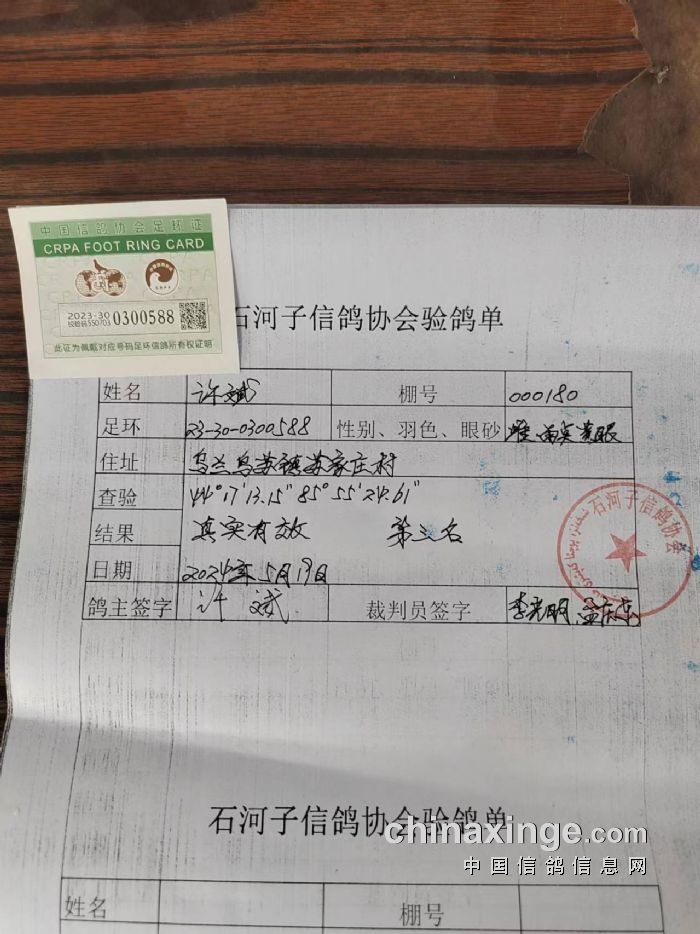 中国信鸽协会足环证
CRPA FOOT RING CARD
2023-30
校验码550703
0300588
此证为佩戴对应号码足环信鸽所有权证明
石河子信鸽协会验鸽单
姓名 许斌 棚号 000180
足环 23-30-0300588 性别、羽色、眼砂 雌 黄眼
住址 乌兰乌苏镇苏家庄村
查验 44°17'13.15" 85°55'24.61"
结果 真实有效 第三名
日期 2024年5月19日
鸽主签字 许斌 裁判员签字 李光明
石河子信鸽协会
石河子信鸽协会验鸽单
chinaxinge.com
中国信鸽信息网
姓名 棚号